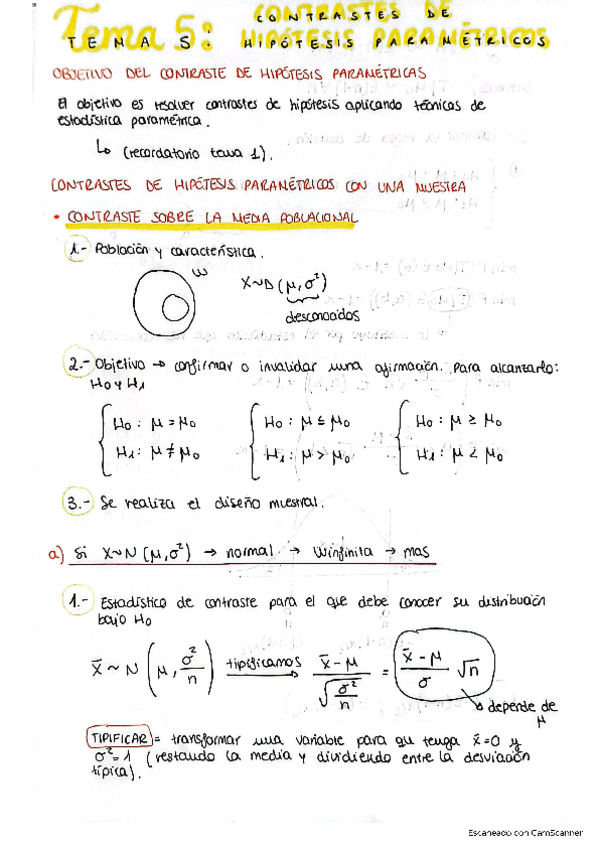 Tema 5: CONTRASTES DE
TEMA 5: HIPÓTESIS PARAMÉTRICOS
OBJETIVO DEL CONTRASTE DE HIPÓTESIS PARAMÉTRICAS
El objetivo es resolver contrastes de hipótesis aplicando técnicas de
estadística paramétrica.
↳ (recordatorio tema 1).
CONTRASTES DE HIPÓTESIS PARAMÉTRICOS CON UNA MUESTRA
• CONTRASTE SOBRE LA MEDIA POBLACIONAL
1.- Población y característica.
ω X~D (μ, σ²)
desconocidos
2.- Objetivo → confirmar o invalidar una afirmación. Para alcanzarlo:
H0 y H1
H0 : μ = μ0 H0 : μ ≤ μ0 H0 : μ ≥ μ0
H1 : μ ≠ μ0 H1 : μ > μ0 H1 : μ < μ0
3.- Se realiza el diseño muestral.
a) Si X~N (μ, σ²) → normal → winfinita → mas
1.- Estadístico de contraste para el que debe conocer su distribución
bajo H0
x̄ ~ N (μ, σ²/n) tipificamos → (x̄ - μ)/√(σ²/n) = (x̄ - μ)/σ √n
↘ depende de
μ
TIPIFICAR = transformar una variable para qu tenga x̄=0 y
σ²=1 (restando la media y dividiendo entre la desviación
típica).
Escaneado con CamScanner